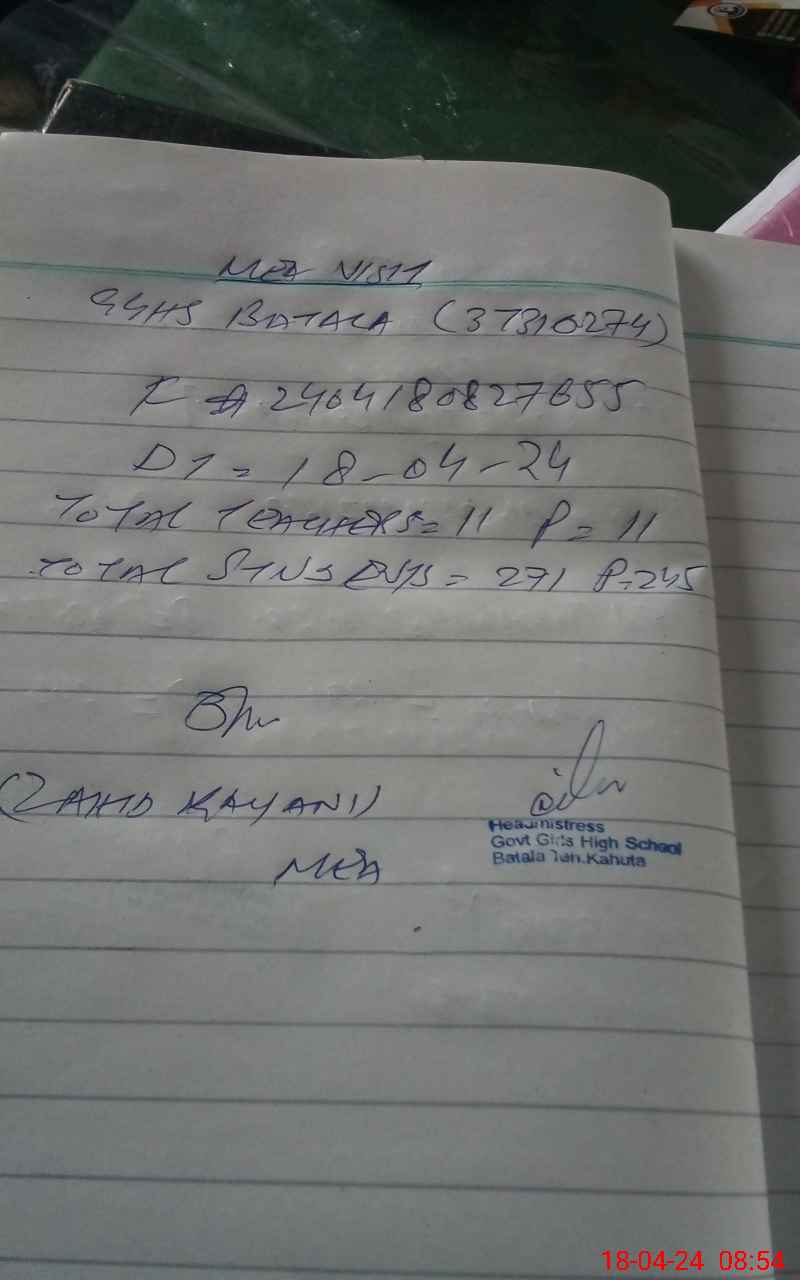 MEA VISIT
GGHS BATALA (37310274)
K # 2404180827655
DT = 18-04-24
TOTAL TEACHERS = 11 P = 11
TOTAL STUDENTS = 271 P = 245
(ZAHID KAYANI)
MEA
Headmistress
Govt Girls High School
Batala Teh.Kahuta
18-04-24 08:54